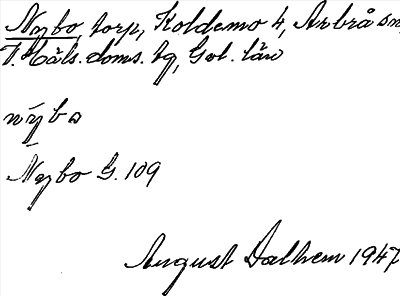 Nybo, torp, Koldemo 4, Arbrå sn,
V. Häls. doms. tg, Gvl. län
nýbo
Nybo G. 109
August Dalhem 1947